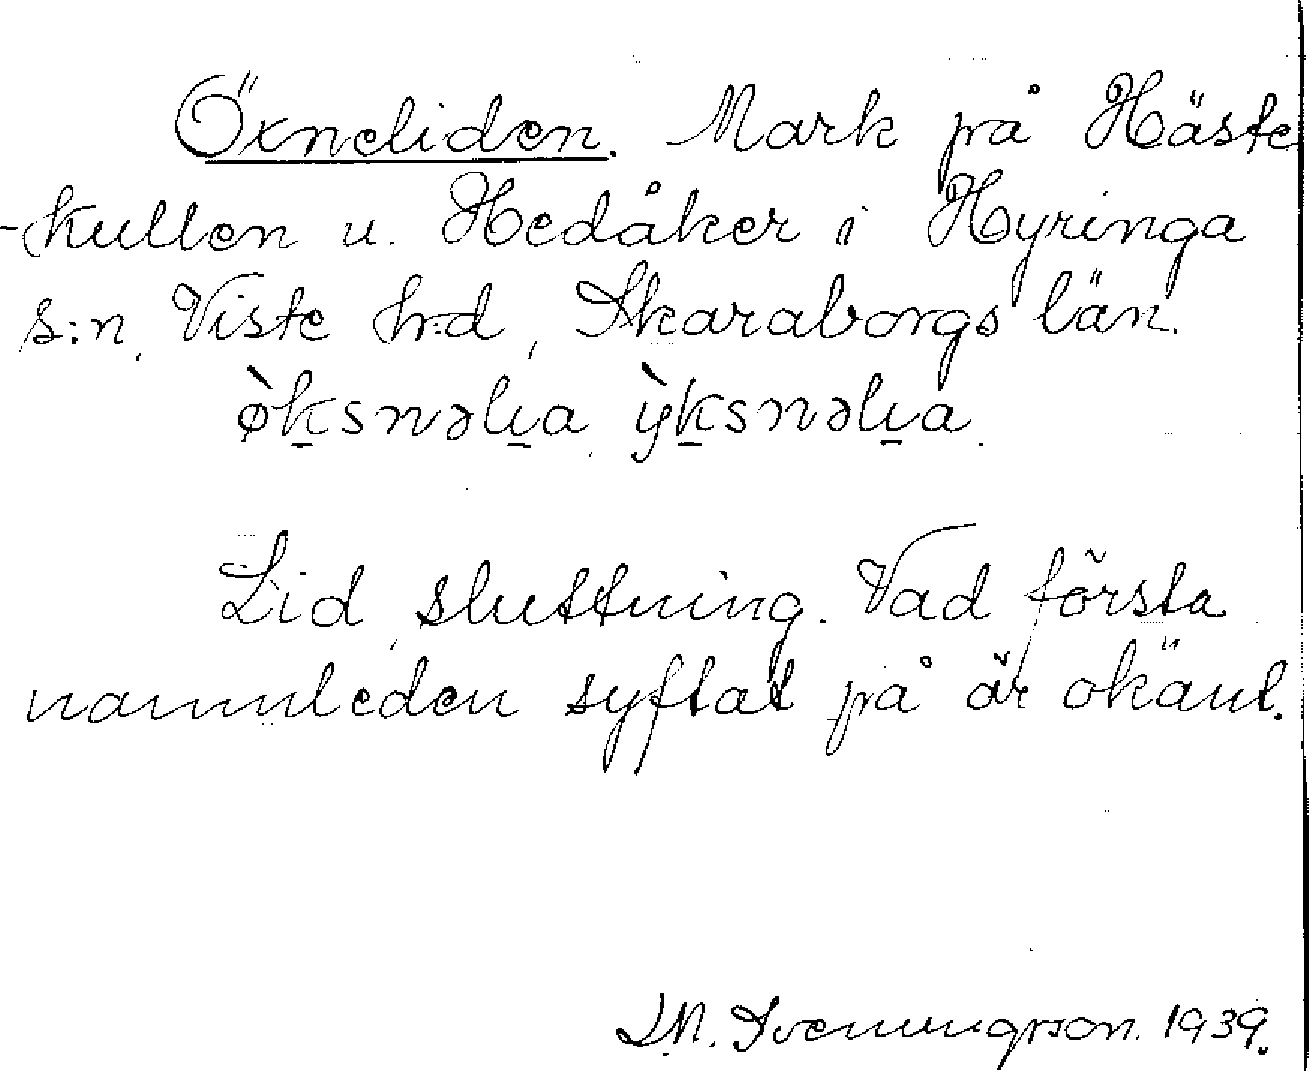 Öxneliden. Mark på Häste
-kullen u. Hedåker i Hyringa
s:n, Viste h:d, Skaraborgs län.
ø̀k̠snəli̠a, ỳk̠snəli̠a.
Lid, sluttning. Vad första
namnleden syftat på är okänt.
J.N. Svenungson. 1939.